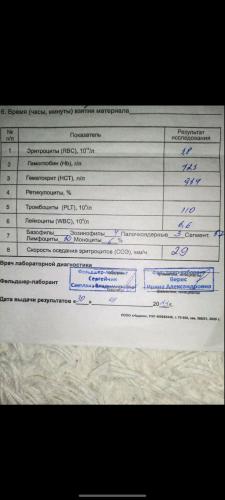 6. Время (часы, минуты) взятия материала
№ п/п Показатель Результат исследования
1 Эритроциты (RBC), 10¹²/л 3,8
2 Гемоглобин (Hb), г/л 123
3 Гематокрит (HCT), л/л
4 Ретикулоциты, %
5 Тромбоциты (PLT), 10⁹/л 110
6 Лейкоциты (WBC), 10⁹/л 6,6
7 Базофилы Эозинофилы 4 Палочкоядерные 3 Сегмент.
Лимфоциты Моноциты %
8 Скорость оседания эритроцитов (СОЭ), мм/ч 29
Врач лабораторной диагностики
Фельдшер-лаборант
Фельдшер-лаборант
Сергейчик
Светлана Владимировна
Фельдшер-лаборант
Верес
Ирина Александровна
Дата выдачи результатов « » 20